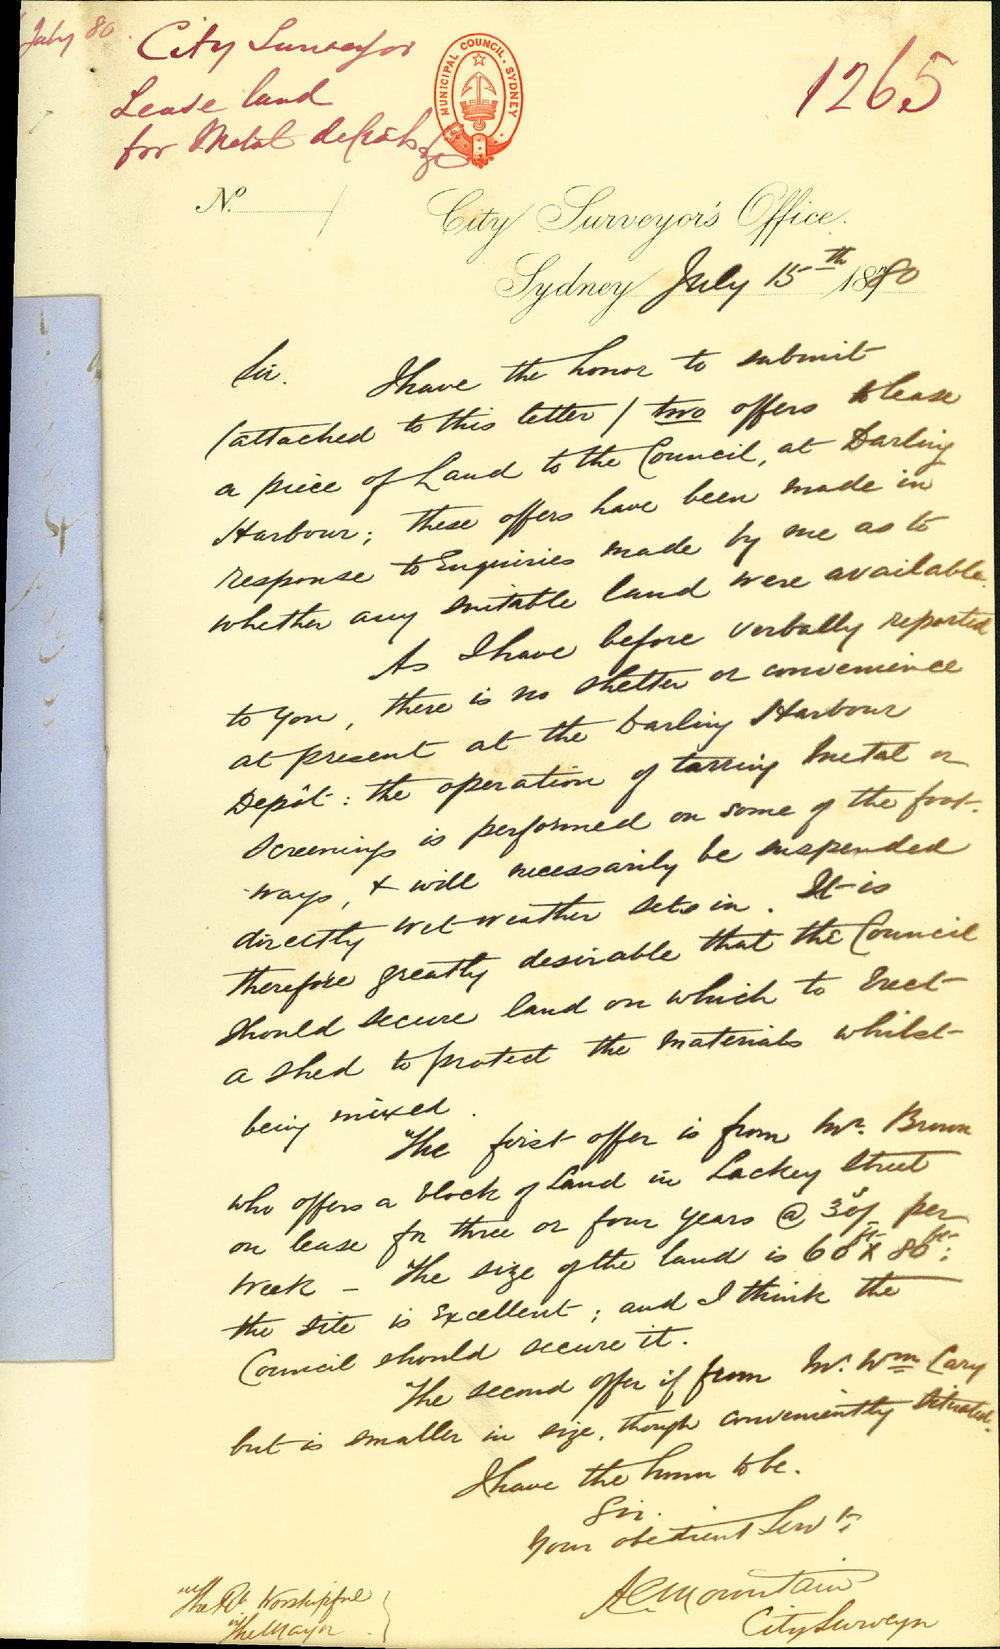 July 80.
City Surveyor
Lease land
for Metal depôt &c
MUNICIPAL COUNCIL. SYDNEY
1265
No.
City Surveyor's Office.
Sydney July 15th 1880
Sir. I have the honor to submit
(attached to this letter) two offers to lease
a piece of Land to the Council, at Darling
Harbour; these offers have been made in
response to Enquiries made by me as to
whether any suitable land were available.
As I have before verbally reported
to you, there is no shelter or convenience
at present at the Darling Harbour
Depôt: the operation of tarring metal or
Screenings is performed on some of the foot-
ways, & will necessarily be suspended
directly wet weather sets in. It is
therefore greatly desirable that the Council
should secure land on which to Erect
a shed to protect the materials whilst
being mixed.
The first offer is from Mr. Brown
who offers a block of Land in Lackey Street
on lease for three or four years @ 30s/ per
week – The size of the land is 60ft x 80ft:
the site is Excellent; and I think the
Council should secure it.
The second offer if from Mr. Wm Cary
but is smaller in size, though conveniently situated.
I have the honor to be.
Sir.
Your obedient Servt
A C Mountain
City Surveyor
The Rt Worshipful
The Mayor